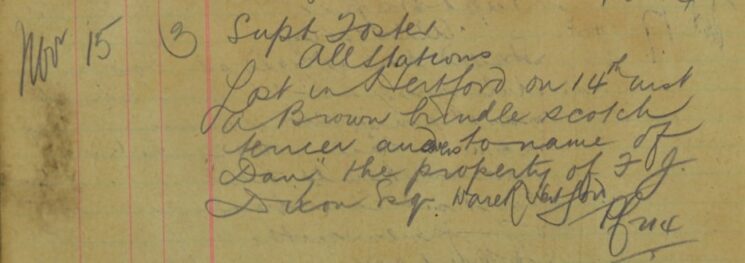 Nov 15 3 Supt Foster
All Stations
Lost in Hertford on 14th inst
a Brown brindle scotch
terrier answers to name of
"Dan" the property of F J.
Dixon Esq. Ware Hertford